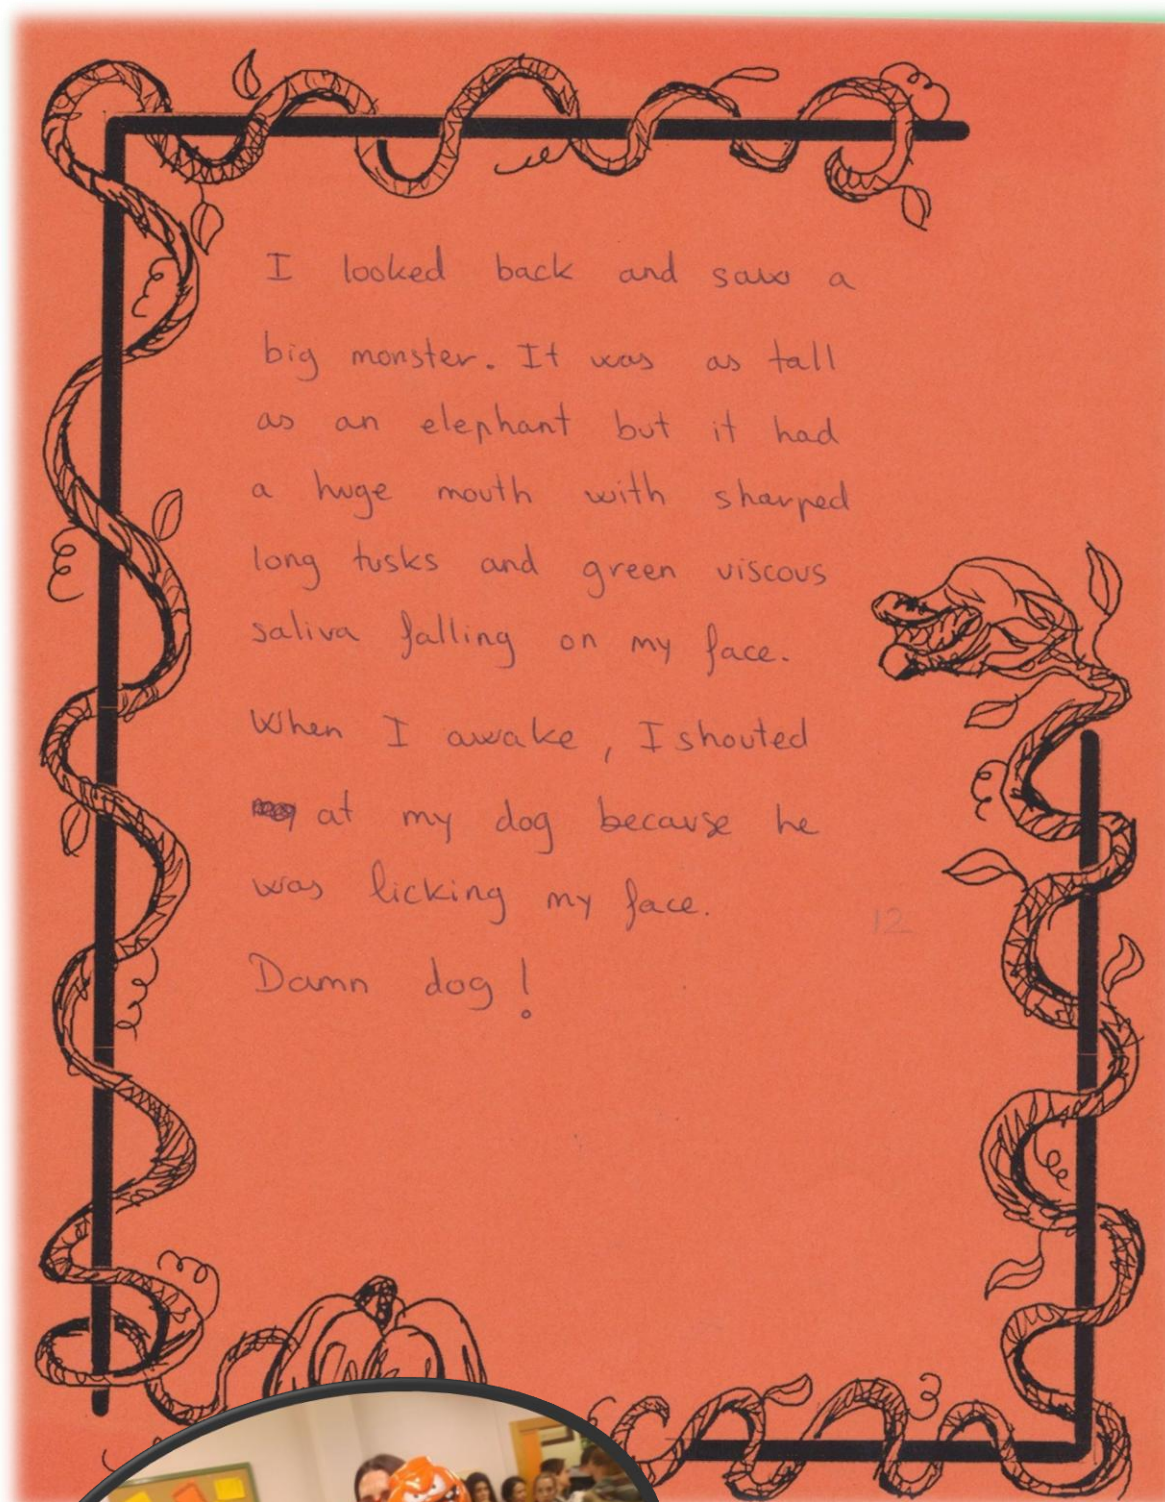 I looked back and saw a
big monster. It was as tall
as an elephant but it had
a huge mouth with sharped
long tusks and green viscous
saliva falling on my face.
When I awake, I shouted
at my dog because he
was licking my face.
12
Damn dog!